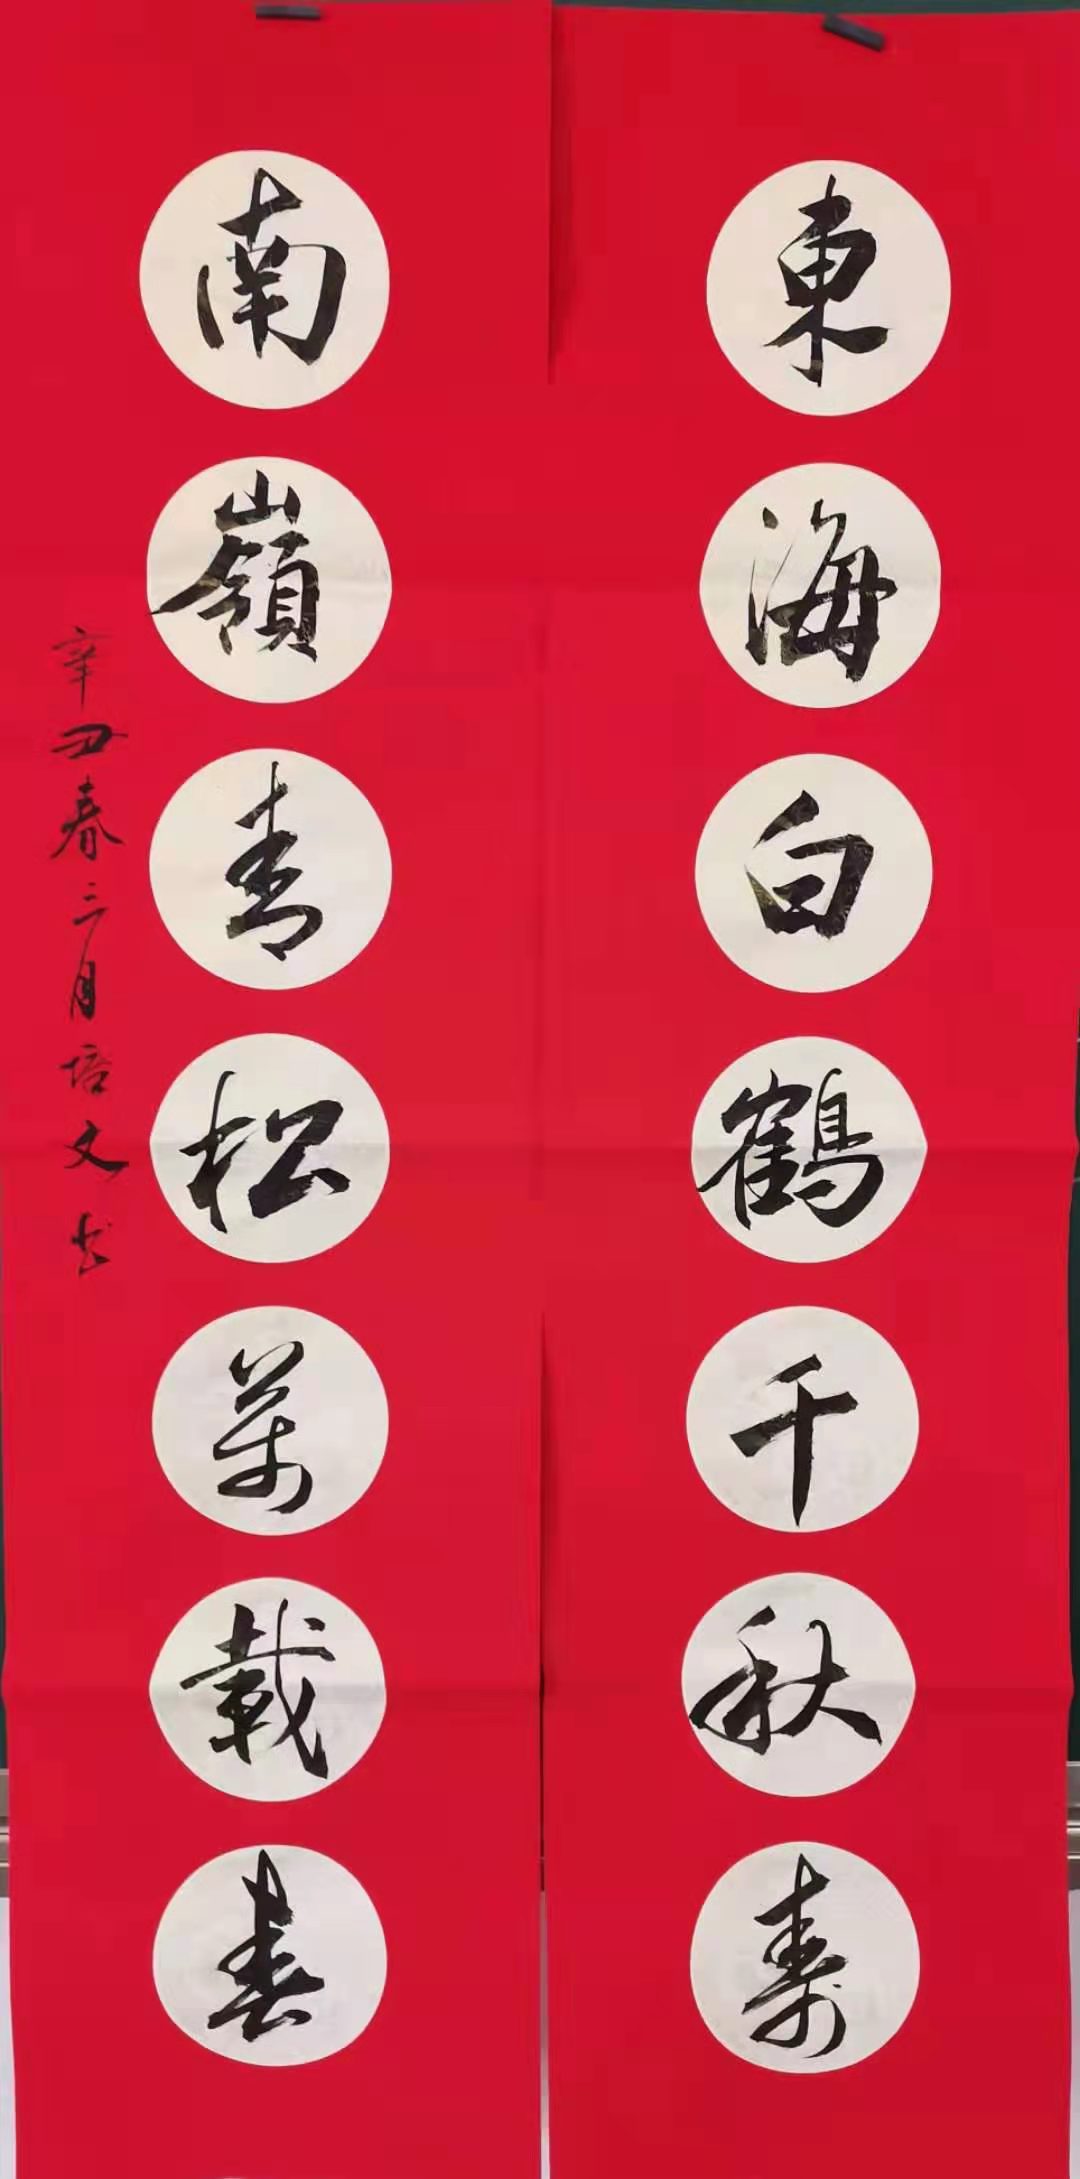 東海白鶴千秋壽
南嶺青松萬載春
辛丑春三月培文书